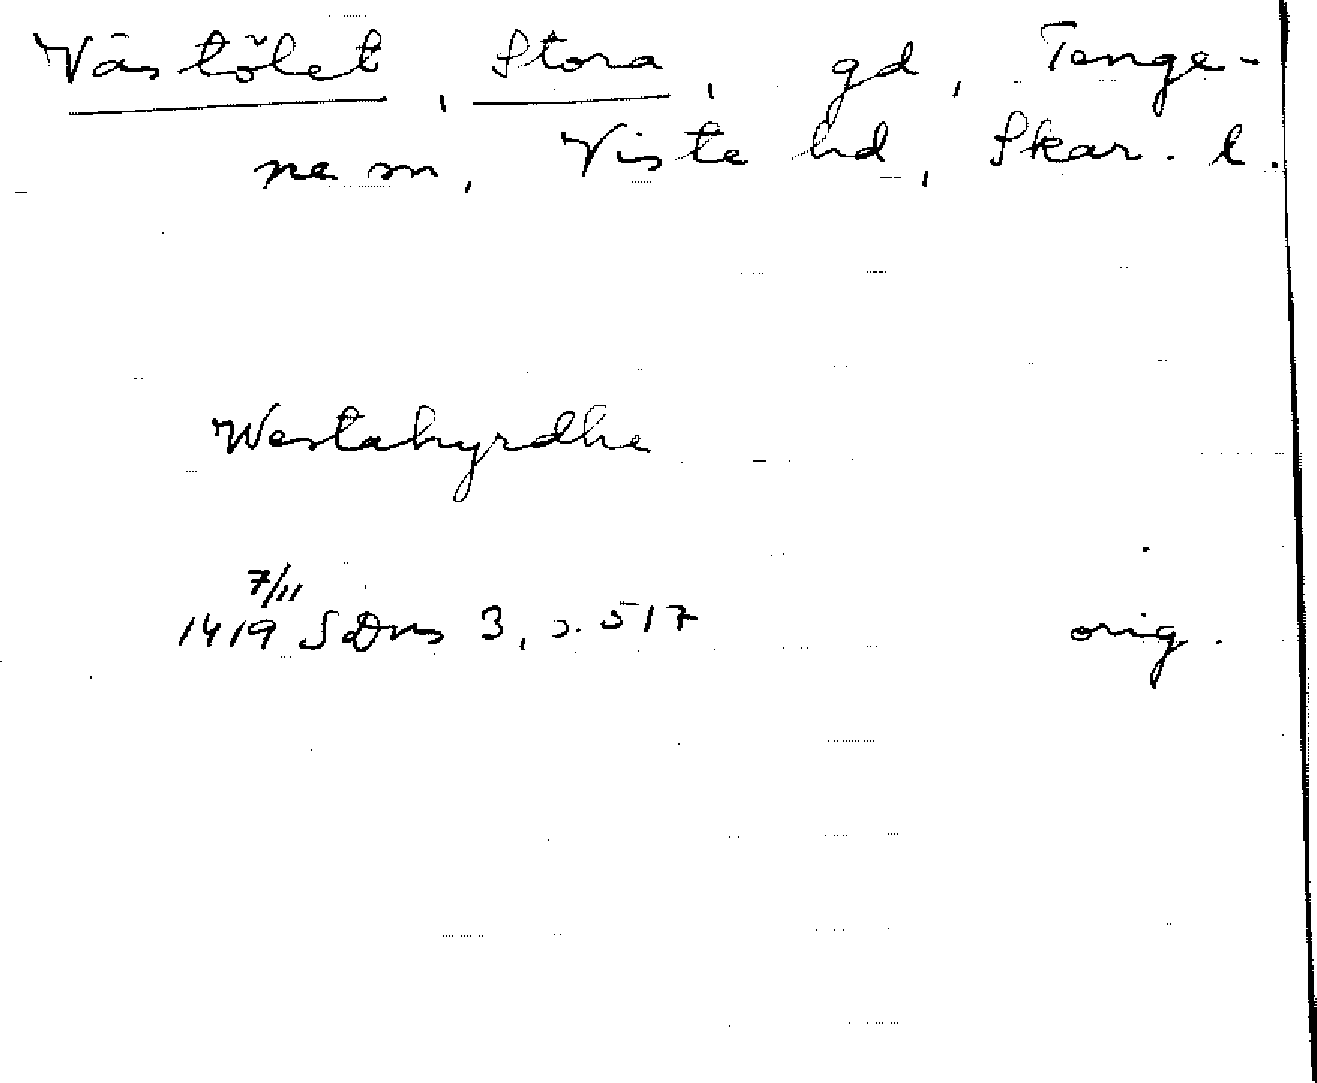 Västölet, Stora, gd, Tenge-
ne sn, Viste hd, Skar. l.
Westahyrdhe
7/11
1419 SDns 3, s. 517 orig.